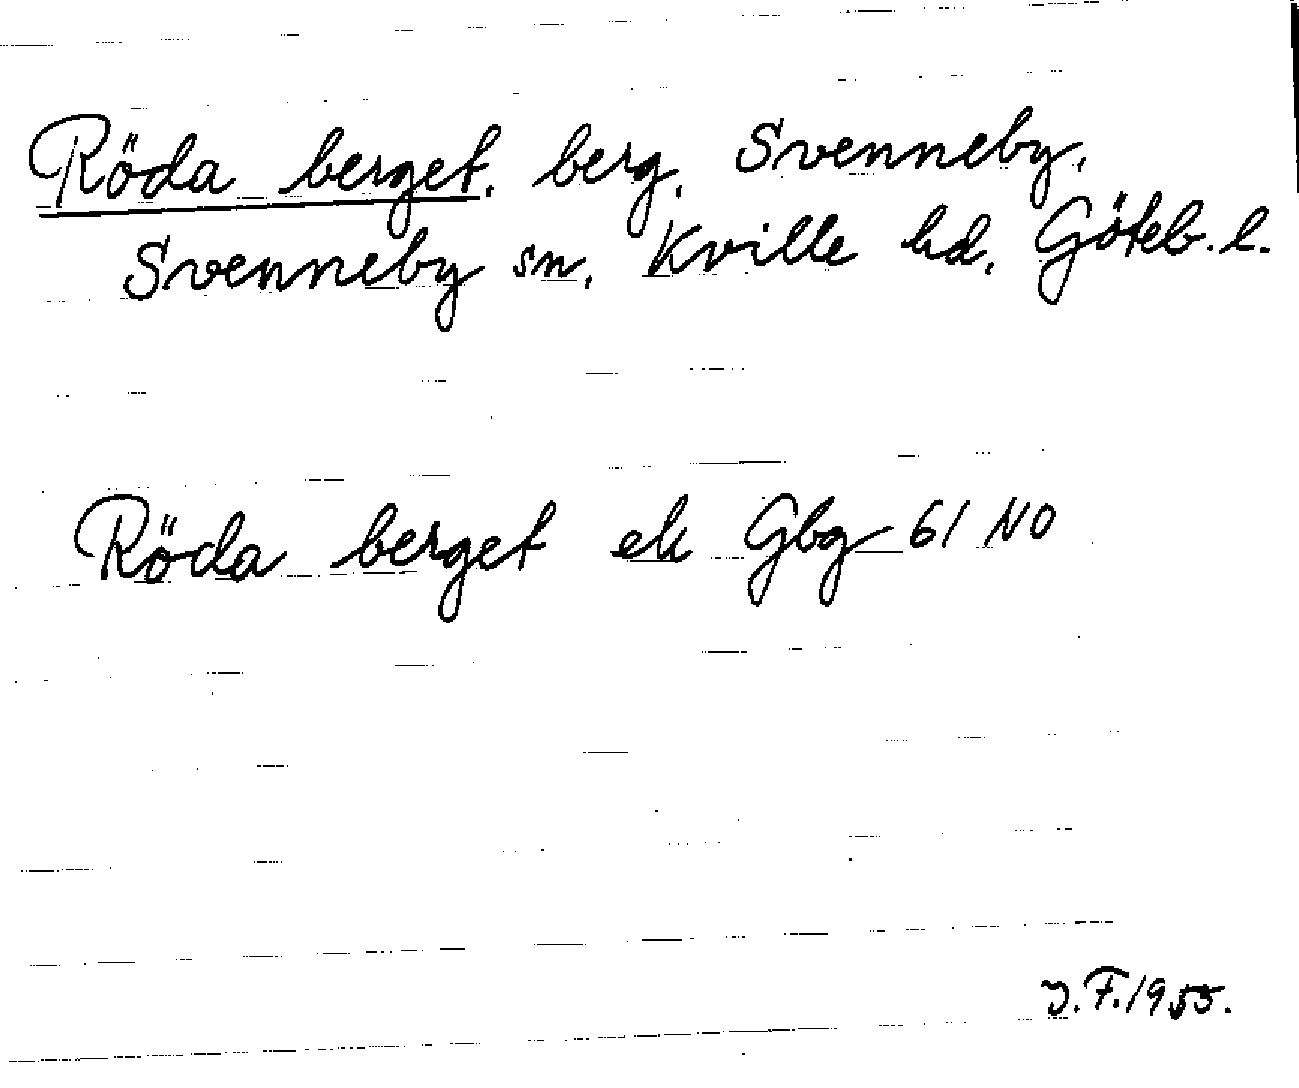 Röda berget. berg. Svenneby,
Svenneby sn, Kville hd. Göteb. l.
Röda berget ek Gbg 61 NO
J.F. 1955.